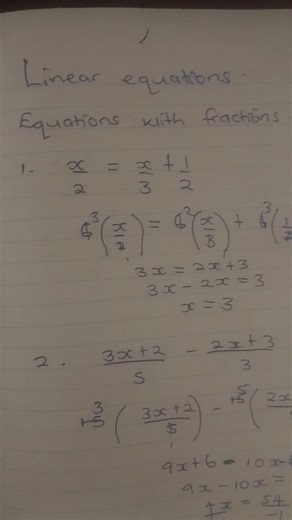 Linear equations.
Equations with fractions
1. x/2 = x/3 + 1/2
6³(x/2) = 6²(x/3) + 6³(1/2
3x = 2x+3
3x - 2x = 3
x = 3
2. 3x+2/5 - 2x+3/3
15³(3x+2/5) - 15⁵(2x
9x+6 - 10x
9x - 10x =
+x = 54
-1